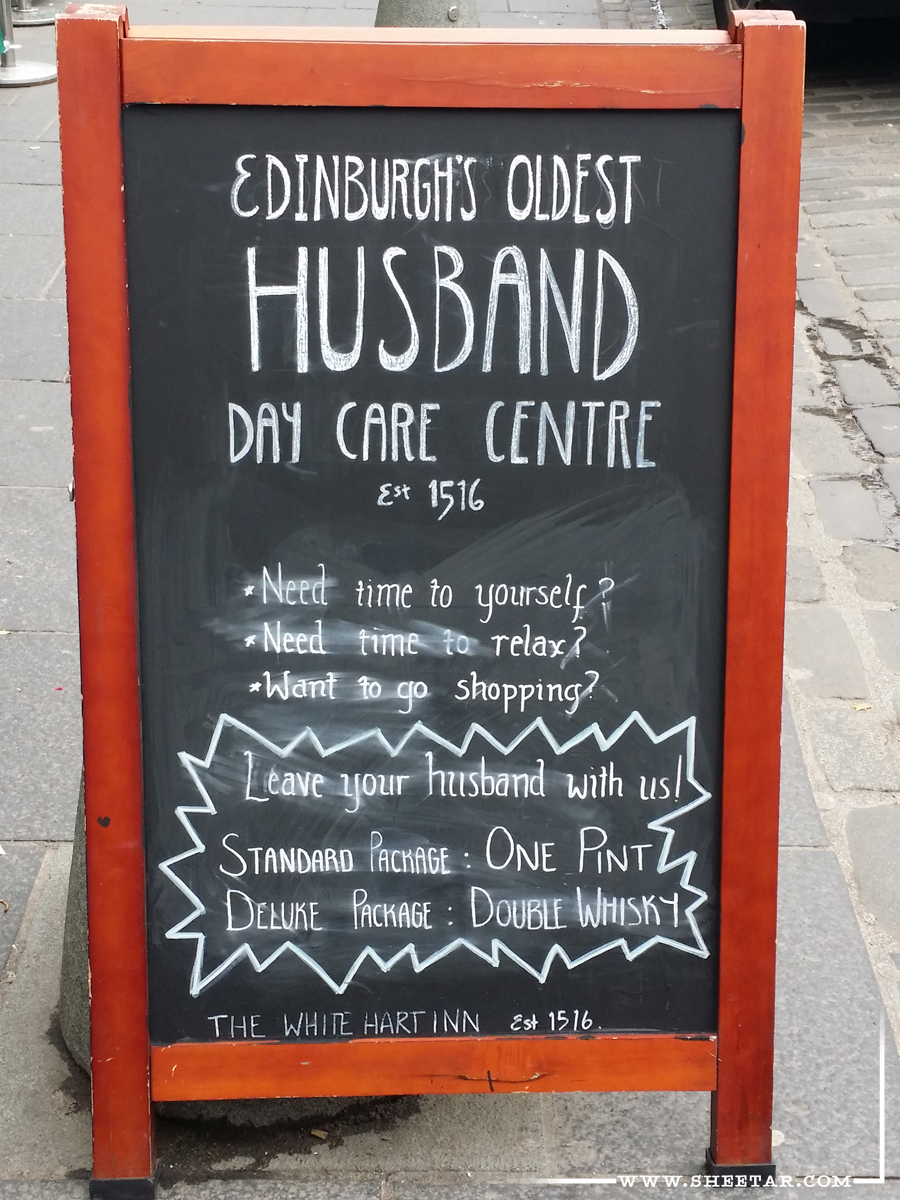 EDINBURGH'S OLDEST
HUSBAND
DAY CARE CENTRE
Est 1516
* Need time to yourself?
* Need time to relax?
* Want to go shopping?
Leave your husband with us!
STANDARD PACKAGE : ONE PINT
DELUXE PACKAGE : DOUBLE WHISKY
THE WHITE HART INN Est 1516.
WWW.SHEETAR.COM